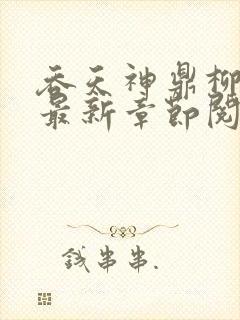 吞天神鼎柳
最新章节阅
钱串串.